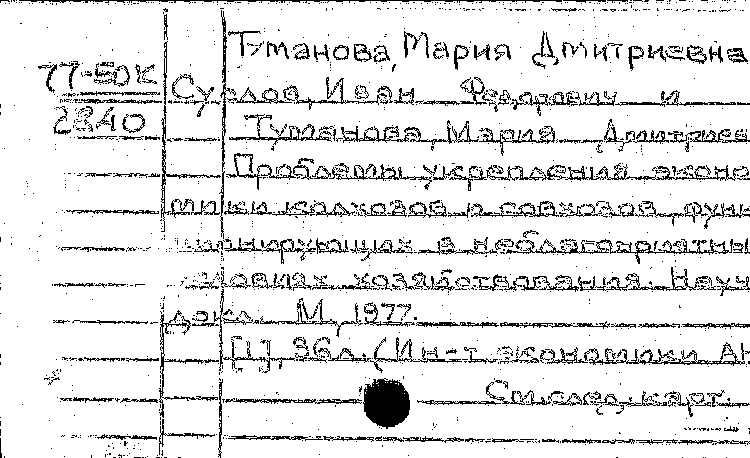 Туманова, Мария Дмитриевна
77-5ДК
2840
Суслов, Иван Федорович и
Туманова, Мария Дмитриев
Проблемы укрепления эконо
мики колхозов и совхозов, функ
ционирующих в неблагоприятны
условиях хозяйствования. Науч
докл. М., 1977.
[1], 36 л. (Ин-т экономики АН
См. след. карт.